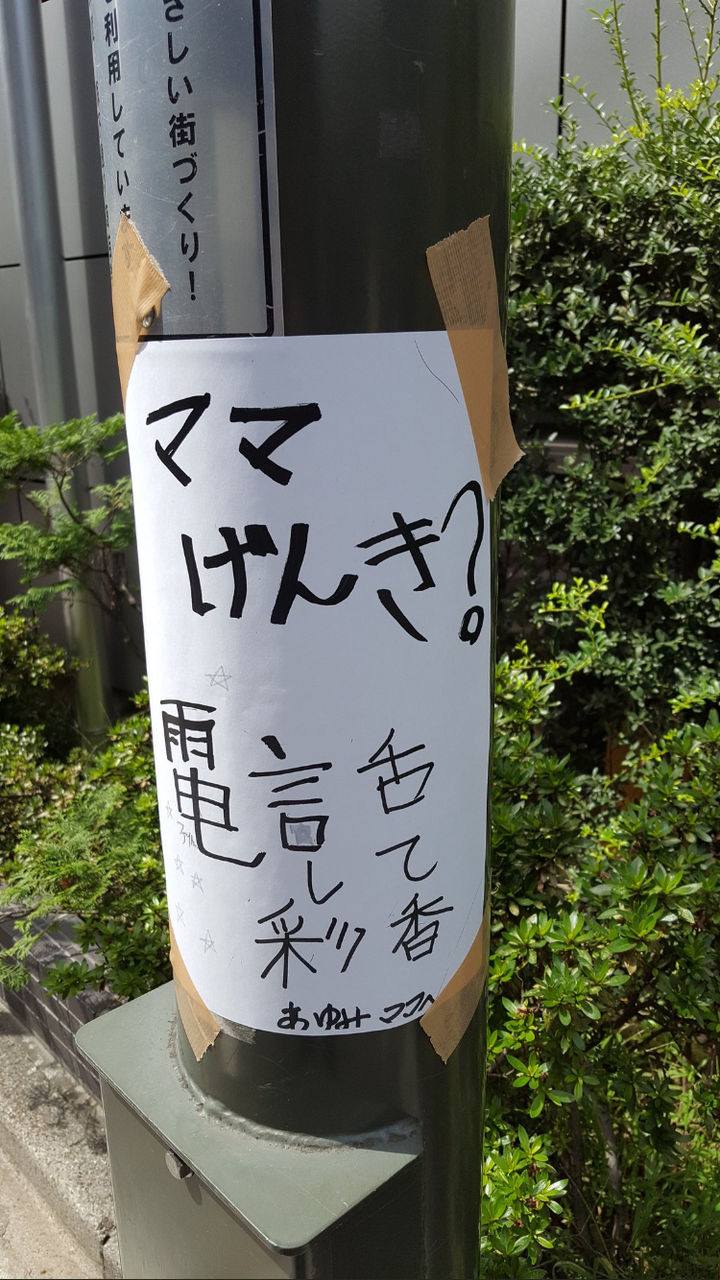 さしい街づくり！
利用していま
ママ
げんき？
電話して
彩香
あゆみ ココへ